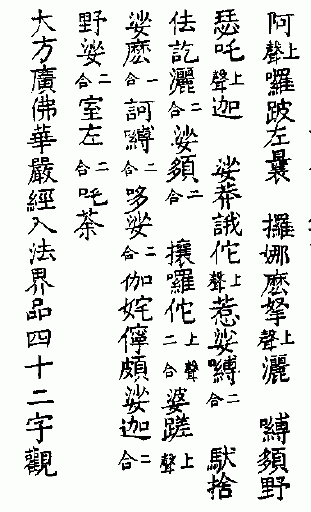 阿上聲囉跛左曩 攞娜麼拏上聲灑 嚩頦野
瑟吒上聲迦 娑莽誐佗上聲惹娑嚩二合 馱捨
佉訖灑二合娑頦二合 攘囉佗上聲二合婆蹉上聲
娑麼二合訶嚩二合哆娑二合伽姹儜頗娑迦二合
野娑二合室左二合吒荼
大方廣佛華嚴經入法界品四十二字觀